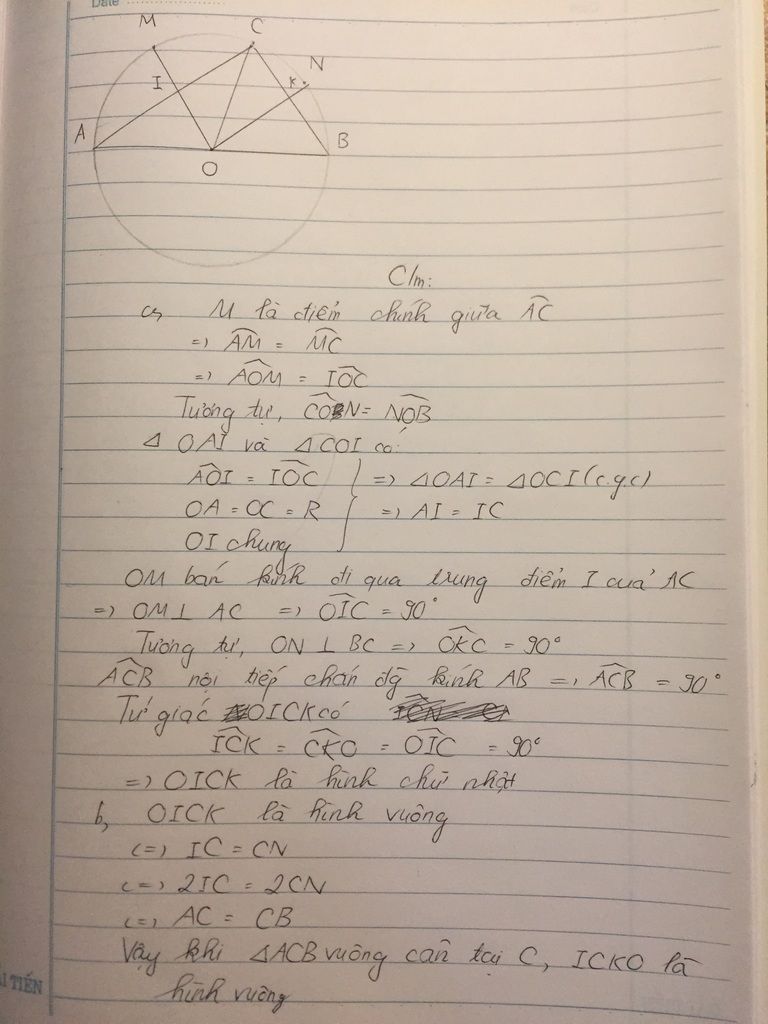 Date
M
C
N
I
K
A
B
O
C/m:
a, M là điểm chính giữa A͡C
=> A͡M = M͡C
=> AÔM = IÔC
Tương tự, CÔN = NÔB
Δ OAI và Δ COI có:
AÔI = IÔC => ΔOAI = ΔOCI (c.g.c)
OA = OC = R => AI = IC
OI chung
OM bán kính đi qua trung điểm I của AC
=> OM ⊥ AC => OÎC = 90°
Tương tự, ON ⊥ BC => OK̂C = 90°
AĈB nội tiếp chắn đg kính AB => AĈB = 90°
Tứ giác OICK có
IĈK = CK̂O = OÎC = 90°
=> OICK là hình chữ nhật
b, OICK là hình vuông
<=> IC = CN
<=> 2IC = 2CN
<=> AC = CB
Vậy khi ΔACB vuông cân tại C, ICKO là
hình vuông
TIẾN